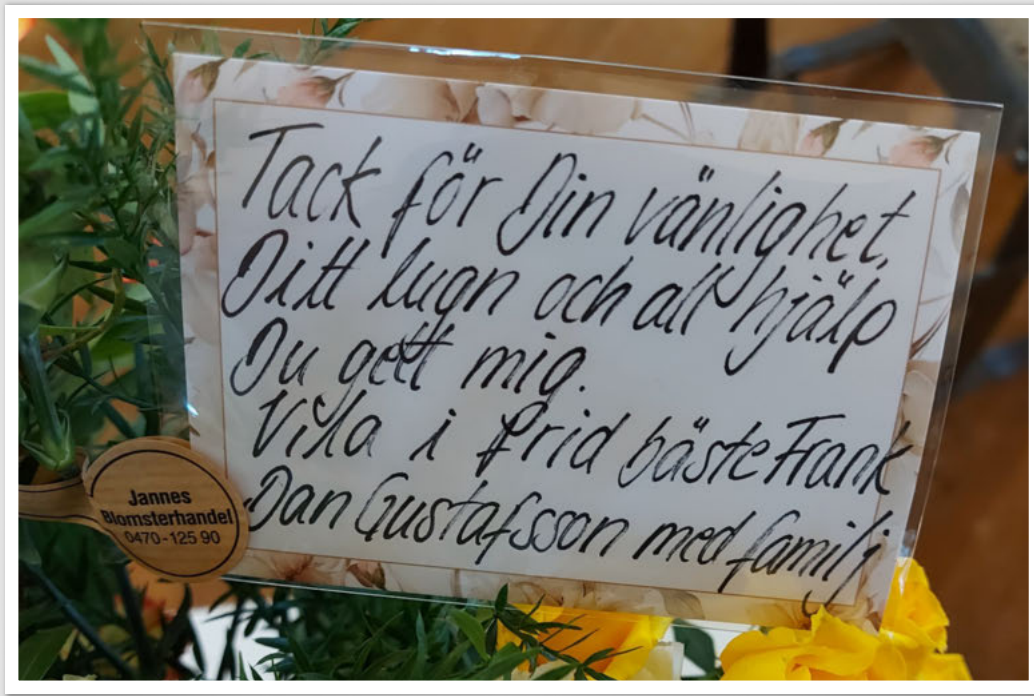 Tack för Din vänlighet,
Ditt lugn och all hjälp
Du gett mig.
Vila i frid bäste Frank
Dan Gustafsson med familj
Jannes
Blomsterhandel
0470-125 90